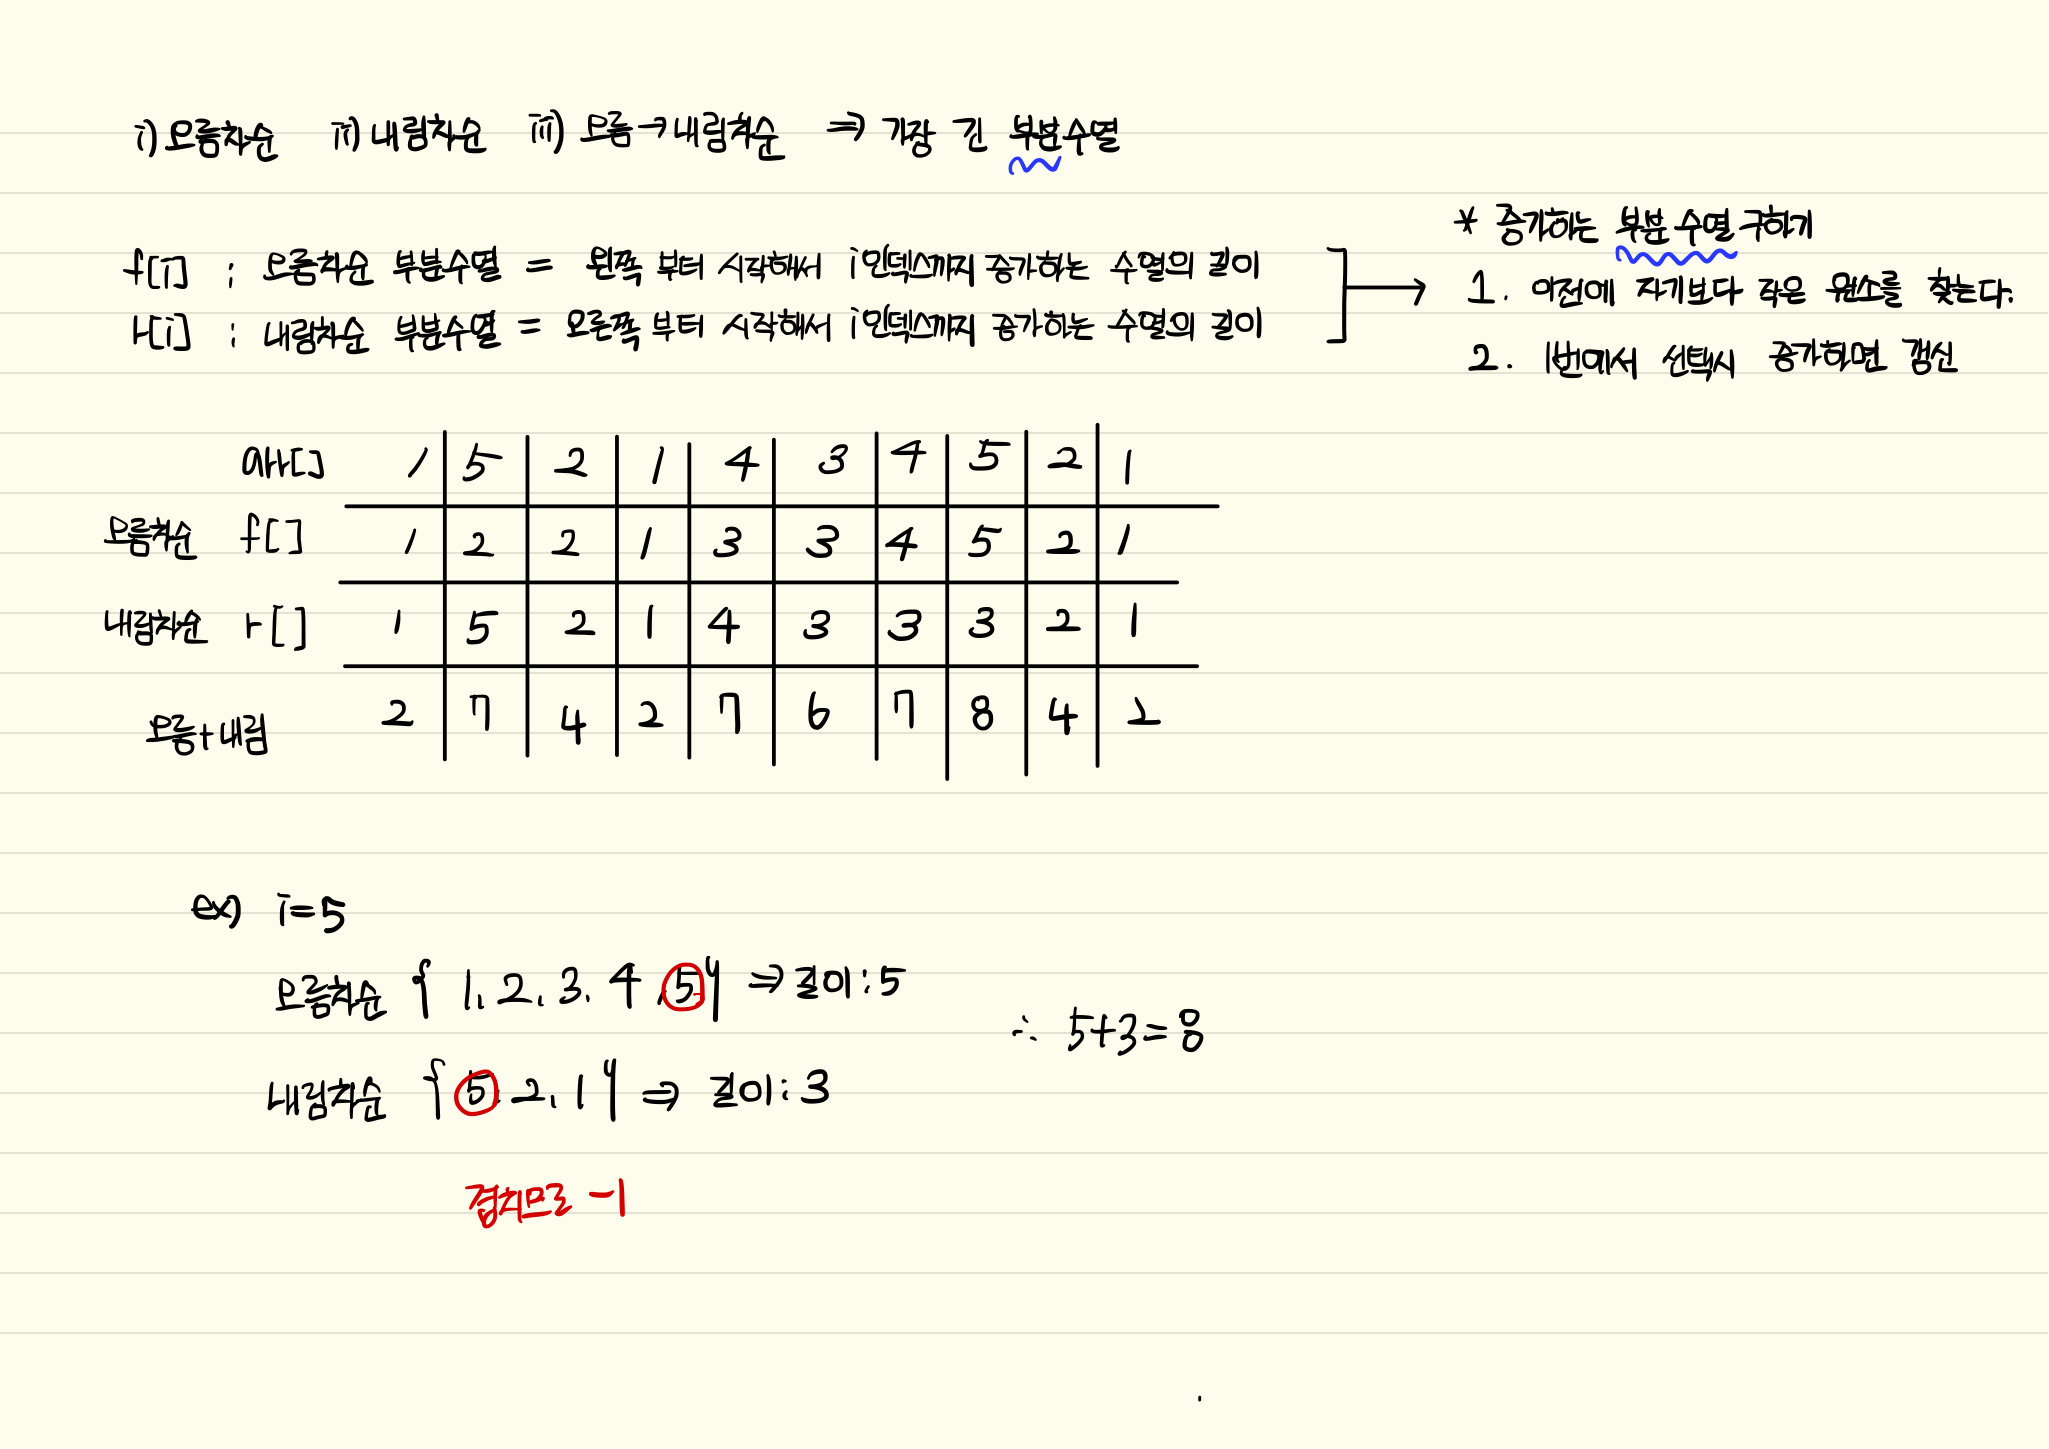 i) 오름차순 ii) 내림차순 iii) 오름→내림차순 ⇒ 가장 긴 부분수열
* 증가하는 부분 수열 구하기
f[i] ; 오름차순 부분수열 = 왼쪽 부터 시작해서 i인덱스까지 증가하는 수열의 길이
1. 이전에 자기보다 작은 원소를 찾는다.
r[i] ; 내림차순 부분수열 = 오른쪽 부터 시작해서 i인덱스까지 증가하는 수열의 길이
2. 1번에서 선택시 증가하면 갱신
arr[] 1 5 2 1 4 3 4 5 2 1
오름차순 f[] 1 2 2 1 3 3 4 5 2 1
내림차순 r[] 1 5 2 1 4 3 3 3 2 1
오름+내림 2 7 4 2 7 6 7 8 4 2
ex) i=5
오름차순 { 1, 2, 3, 4, 5 } ⇒ 길이: 5
∴ 5+3=8
내림차순 { 5, 2, 1 } ⇒ 길이: 3
겹치므로 -1